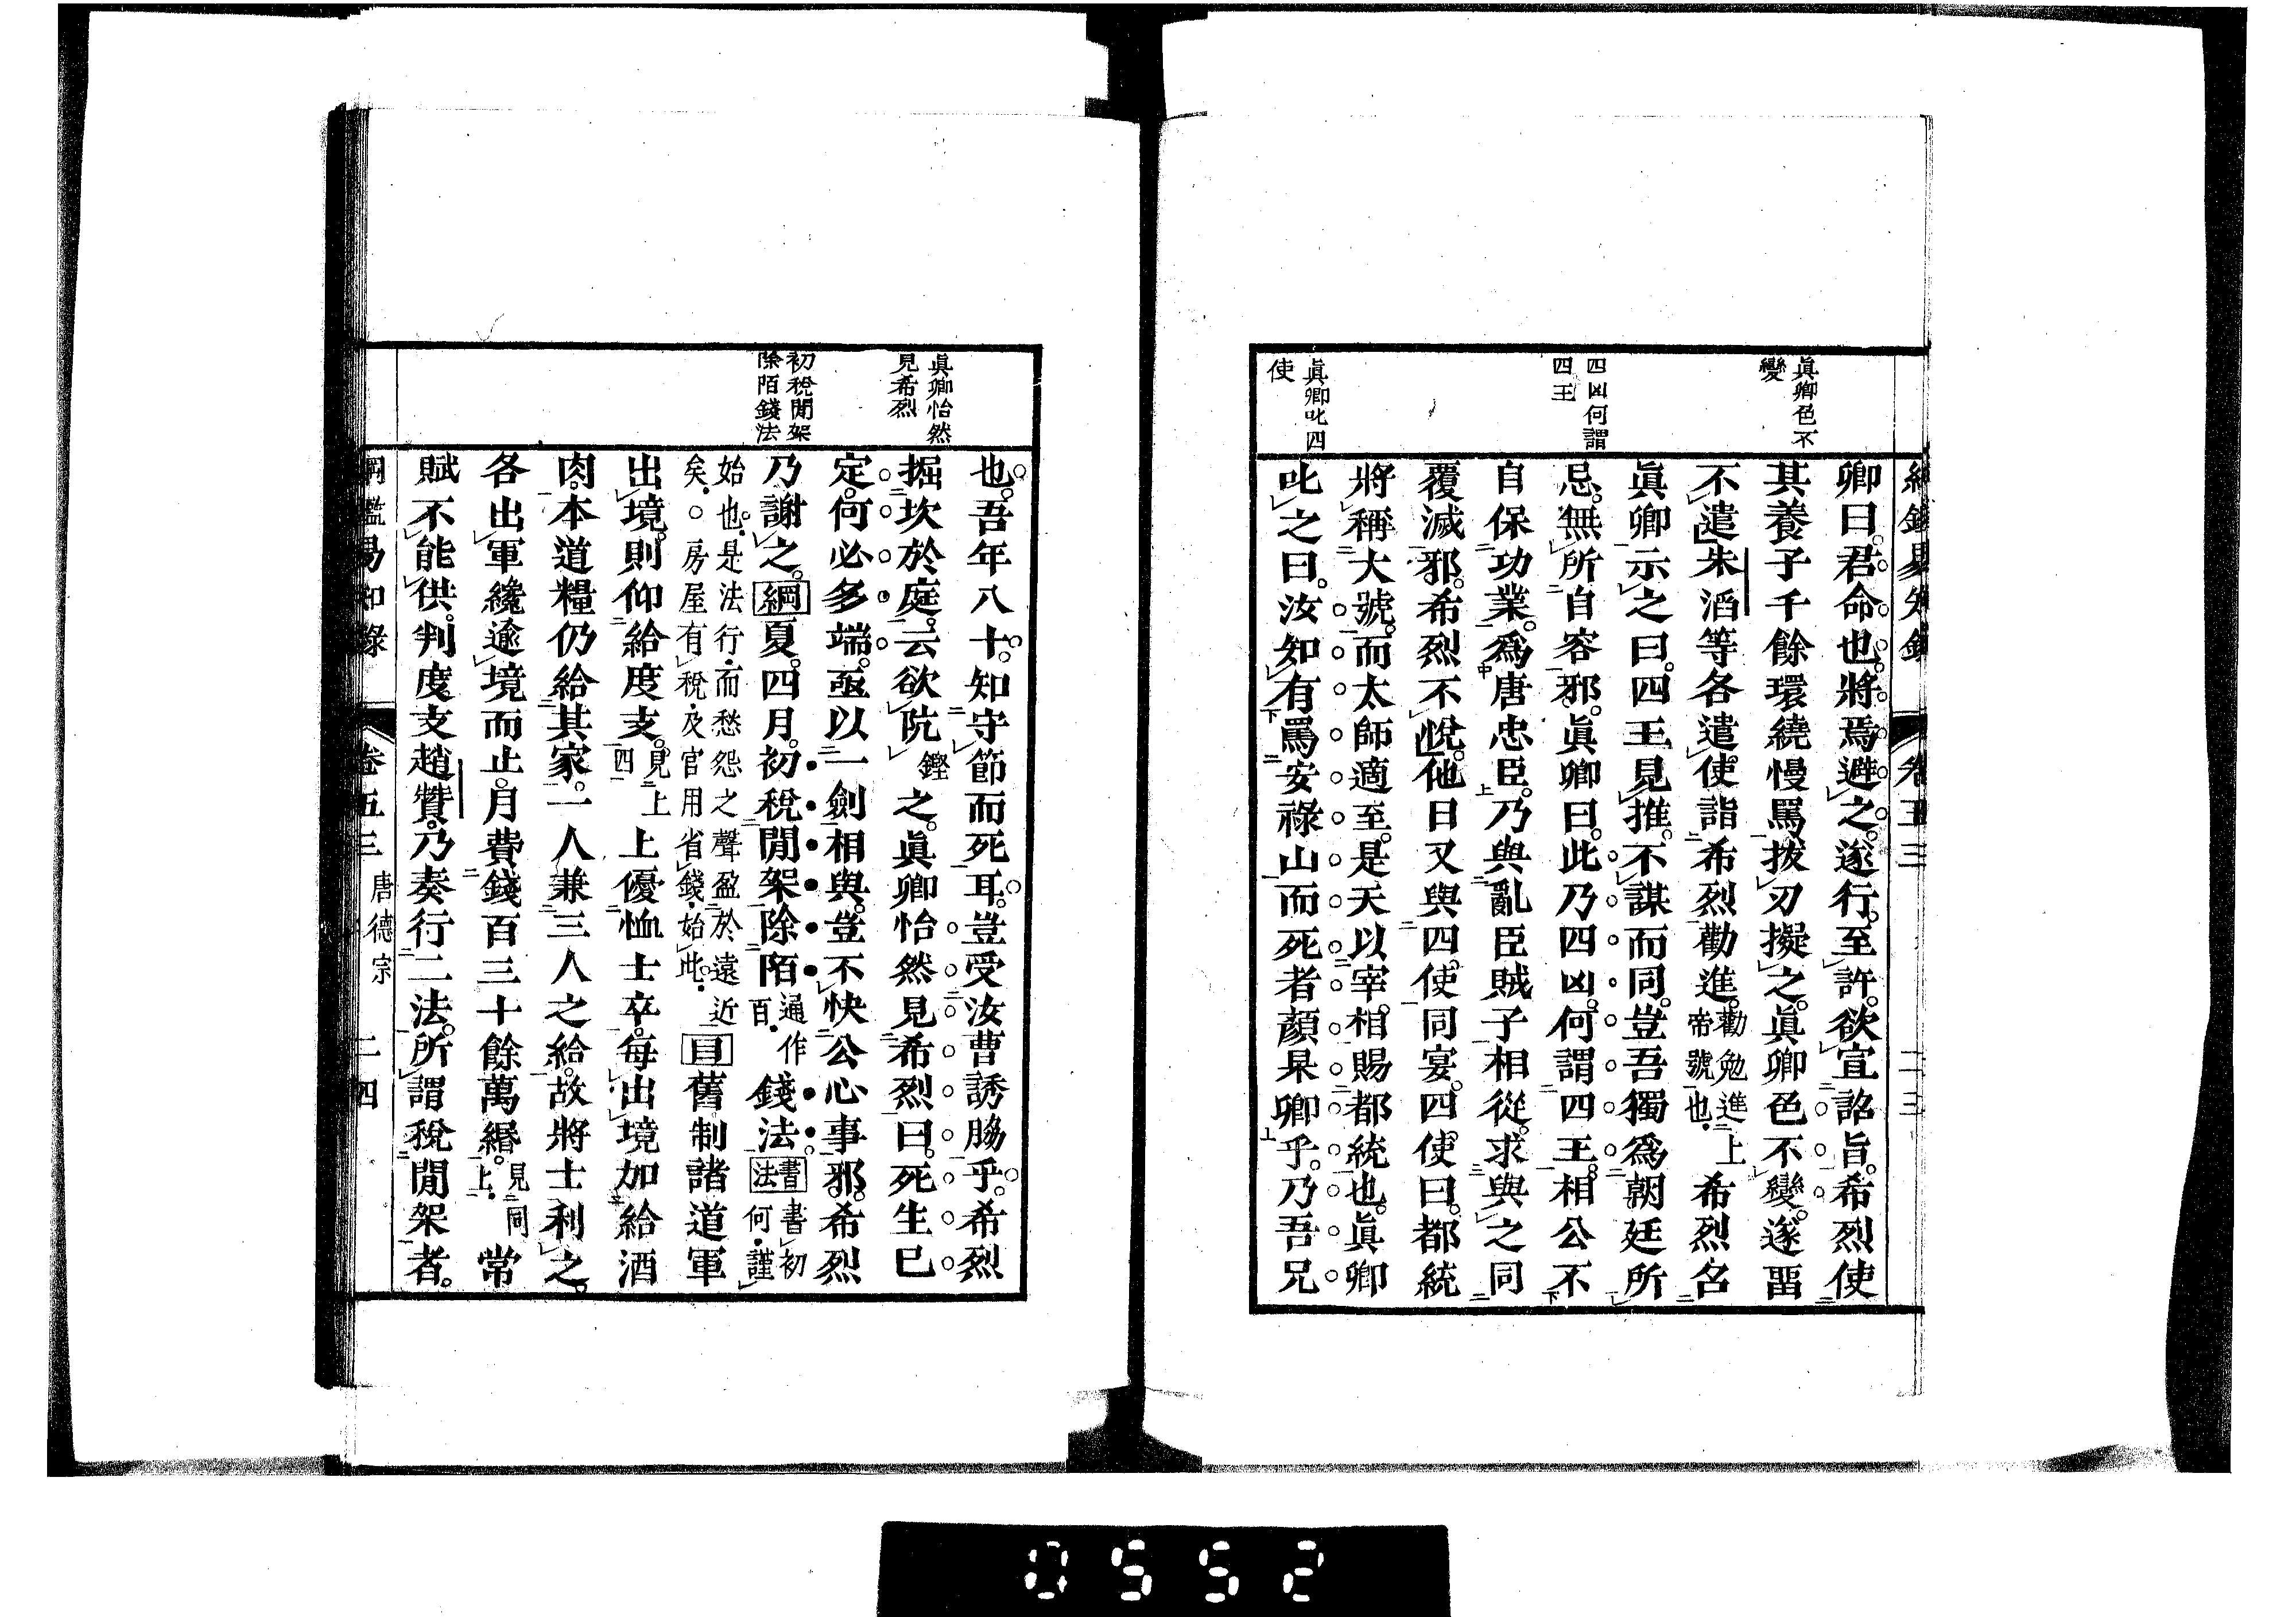 眞卿色不
變
四凶何謂
四王
眞卿叱四
使
卷五三
二三
卿曰。君命也。將焉避之。遂行。至許。欲宣詔旨。希烈使
其養子千餘環繞慢罵。拔刃擬之。眞卿色不變。遂畱
不遣。朱滔等各遣使詣希烈勸進。勸勉進上帝號也。希烈名
眞卿示之曰。四王見推。不謀而同。豈吾獨爲朝廷所
忌。無所自容邪。眞卿曰。此乃四凶。何謂四王。相公不
自保功業。爲唐忠臣。乃與亂臣賊子相從。求與之同
覆滅邪。希烈不悅。他日又與四使同宴。四使曰。都統
將稱大號。而太師適至。是天以宰相賜都統也。眞卿
叱之曰。汝知有罵安祿山而死者顏杲卿乎。乃吾兄
眞卿怡然
見希烈
初稅閒架
除陌錢法
也。吾年八十。知守節而死耳。豈受汝曹誘脇乎。希烈
掘坎於庭。云欲阬鏗之。眞卿怡然見希烈曰。死生已
定。何必多端。亟以一劍相與。豈不快公心事邪。希烈
乃謝之。綱夏。四月。初稅閒架除陌通作百。錢法。書法書初何。謹
始也。是法行。而愁怨之聲盈於遠近矣。○房屋有稅。及官用省錢。始此。目舊制諸道軍
出境。則仰給度支。見上四上優恤士卒。每出境加給酒
肉。本道糧仍給其家。一人兼三人之給。故將士利之。
各出軍纔逾境而止。月費錢百三十餘萬緡。見同上。常
賦不能供。判度支趙贊。乃奏行二法。所謂稅閒架者。
綱鑑易知錄 卷五三 唐德宗 二四
0552